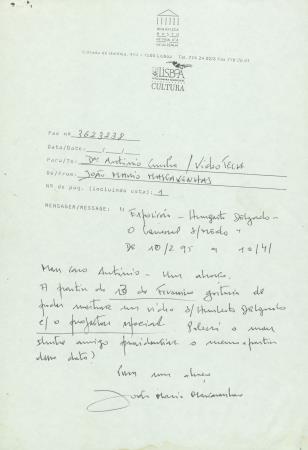 BIBLIOTECA
MUSEU
REPÚBLICA
E RESISTÊNCIA
Estrada de Benfica, 419 - 1500 Lisboa Tel.
LISBOA
CULTURA
Fax nº 3623238
Data/Date: __/__/__
Para/To: Dr António Cunha / VIDEOTECA
De/From: JOÃO MARIO MASCARENHAS
Nº de pag. (incluindo esta): 1
MENSAGEM/MESSAGE: "
Exposição - Humberto Delgado -
O General S/Medo"
DE 10/2 95 a 10/4/
Meu caro António - Um abraço.
A partir de 13 de Fevereiro gostaria de
poder mostrar um vídeo s/ Humberto Delgado
c/ o projector especial. Poderá o meu
ilustre amigo providenciar o mesmo a partir
dessa data?
Com um abraço
João Mario Mascarenhas